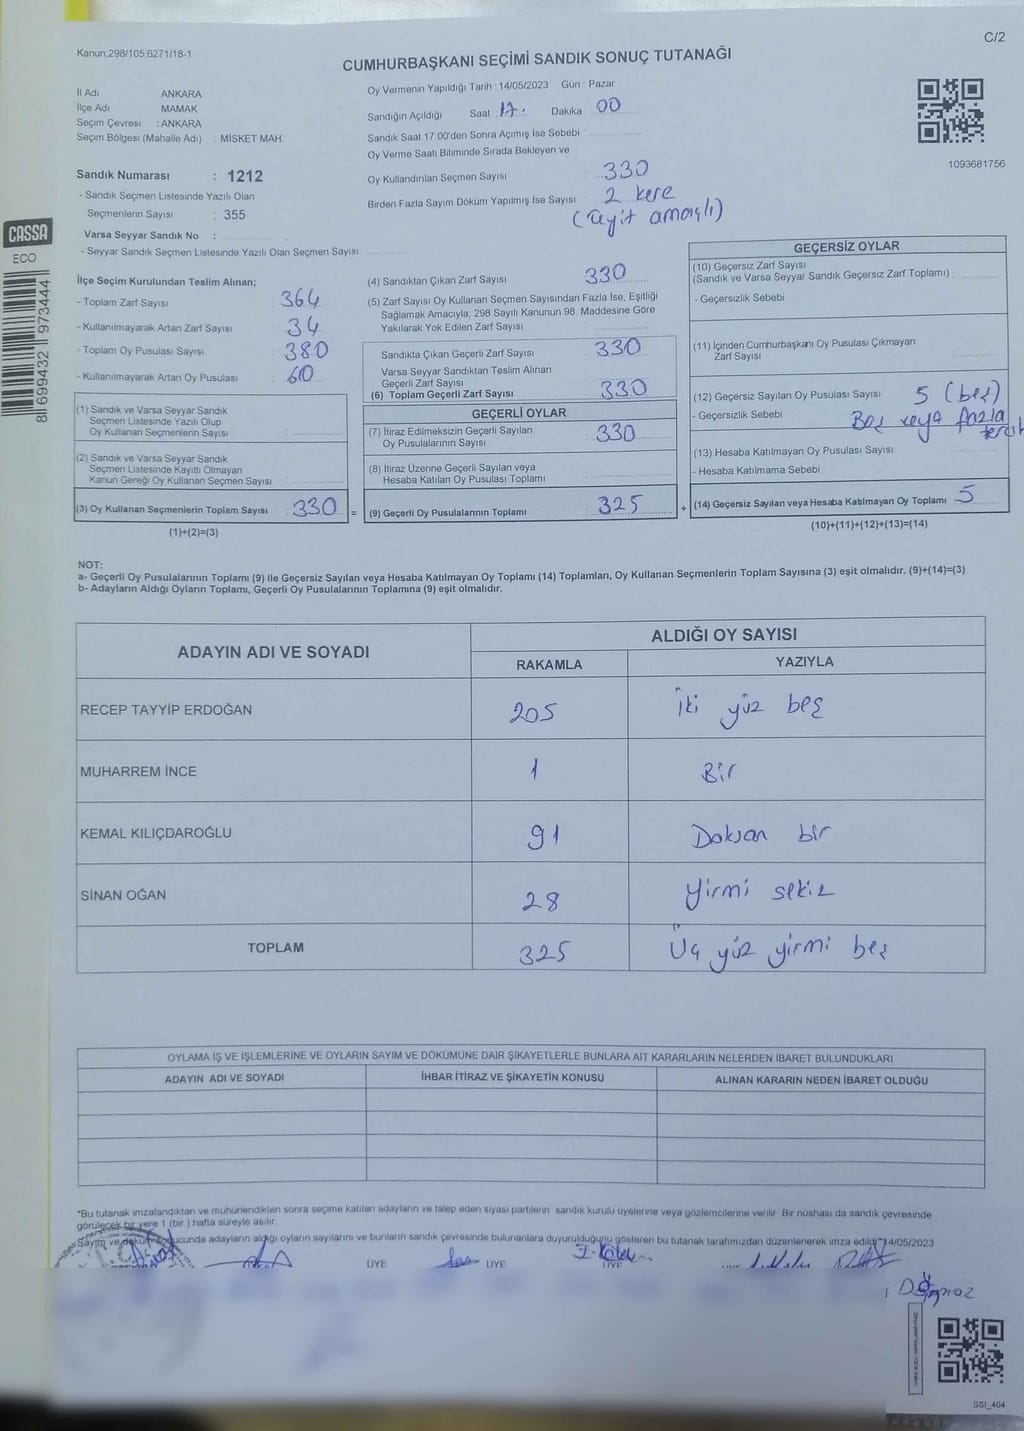 C/2
Kanun,298/105,6271/18-1
CUMHURBAŞKANI SEÇİMİ SANDIK SONUÇ TUTANAĞI
İl Adı ANKARA
İlçe Adı MAMAK
Seçim Çevresi : ANKARA
Seçim Bölgesi (Mahalle Adı) : MİSKET MAH.
Oy Vermenin Yapıldığı Tarih : 14/05/2023 Gün : Pazar
Sandığın Açıldığı Saat 17. Dakika 00
Sandık Saat 17 00'den Sonra Açımış İse Sebebi
Oy Verme Saati Bitiminde Sırada Bekleyen ve
Oy Kullandırılan Seçmen Sayısı 330
Birden Fazla Sayım Döküm Yapılmış İse Sayısı 2 kere
(Teyit amaçlı)
1093681756
Sandık Numarası : 1212
- Sandık Seçmen Listesinde Yazılı Olan
Seçmenlerin Sayısı : 355
Varsa Seyyar Sandık No :
- Seyyar Sandık Seçmen Listesinde Yazılı Olan Seçmen Sayısı
CASSA
ECO
8 699432 973444
İlçe Seçim Kurulundan Teslim Alınan;
- Toplam Zarf Sayısı 364
- Kullanılmayarak Artan Zarf Sayısı 34
- Toplam Oy Pusulası Sayısı 380
- Kullanılmayarak Artan Oy Pusulası 60
(1) Sandık ve Varsa Seyyar Sandık
Seçmen Listesinde Yazılı Olup
Oy Kullanan Seçmenlerin Sayısı
(2) Sandık ve Varsa Seyyar Sandık
Seçmen Listesinde Kayıtlı Olmayan
Kanun Gereği Oy Kullanan Seçmen Sayısı
(3) Oy Kullanan Seçmenlerin Toplam Sayısı 330 =
(1)+(2)=(3)
(4) Sandıktan Çıkan Zarf Sayısı 330
(5) Zarf Sayısı Oy Kullanan Seçmen Sayısından Fazla İse, Eşitliği
Sağlamak Amacıyla, 298 Sayılı Kanunun 98. Maddesine Göre
Yakılarak Yok Edilen Zarf Sayısı
Sandıkta Çıkan Geçerli Zarf Sayısı 330
Varsa Seyyar Sandıktan Teslim Alınan
Geçerli Zarf Sayısı
(6) Toplam Geçerli Zarf Sayısı 330
GEÇERLİ OYLAR
(7) İtiraz Edilmeksizin Geçerli Sayılan
Oy Pusulalarının Sayısı 330
(8) İtiraz Üzerine Geçerli Sayılan veya
Hesaba Katılan Oy Pusulası Toplamı
(9) Geçerli Oy Pusulalarının Toplamı 325 +
GEÇERSİZ OYLAR
(10) Geçersiz Zarf Sayısı
(Sandık ve Varsa Seyyar Sandık Geçersiz Zarf Toplamı)
- Geçersizlik Sebebi
(11) İçinden Cumhurbaşkanı Oy Pusulası Çıkmayan
Zarf Sayısı
(12) Geçersiz Sayılan Oy Pusulası Sayısı 5 (beş)
- Geçersizlik Sebebi : Boş veya fazla
tercih
(13) Hesaba Katılmayan Oy Pusulası Sayısı
- Hesaba Katılmama Sebebi
(14) Geçersiz Sayılan veya Hesaba Katılmayan Oy Toplamı 5
(10)+(11)+(12)+(13)=(14)
NOT:
a- Geçerli Oy Pusulalarının Toplamı (9) ile Geçersiz Sayılan veya Hesaba Katılmayan Oy Toplamı (14) Toplamları, Oy Kullanan Seçmenlerin Toplam Sayısına (3) eşit olmalıdır. (9)+(14)=(3)
b- Adayların Aldığı Oyların Toplamı, Geçerli Oy Pusulalarının Toplamına (9) eşit olmalıdır.
ADAYIN ADI VE SOYADI ALDIĞI OY SAYISI
RAKAMLA YAZIYLA
RECEP TAYYİP ERDOĞAN 205 İki yüz beş
MUHARREM İNCE 1 Bir
KEMAL KILIÇDAROĞLU 91 Doksan bir
SİNAN OĞAN 28 Yirmi sekiz
TOPLAM 325 Üç yüz yirmi beş
OYLAMA İŞ VE İŞLEMLERİNE VE OYLARIN SAYIM VE DÖKÜMÜNE DAİR ŞİKAYETLERLE BUNLARA AİT KARARLARIN NELERDEN İBARET BULUNDUKLARI
ADAYIN ADI VE SOYADI İHBAR İTİRAZ VE ŞİKAYETİN KONUSU ALINAN KARARIN NEDEN İBARET OLDUĞU
"Bu tutanak imzalandıktan ve mühürlendikten sonra seçime katılan adayların ve talep eden siyasi partilerin sandık kurulu üyelerine veya gözlemcilerine verilir. Bir nüshası da sandık çevresinde
görülecek bir yere 1 (bir ) hafta süreyle asılır.
Sayım ve döküm sonucunda adayların aldığı oyların sayılarını ve bunların sandık çevresinde bulunanlara duyurulduğunu gösteren bu tutanak tarafımızdan düzenlenerek imza edildi."14/05/2023
ÜYE ÜYE ÜYE
SSI_404